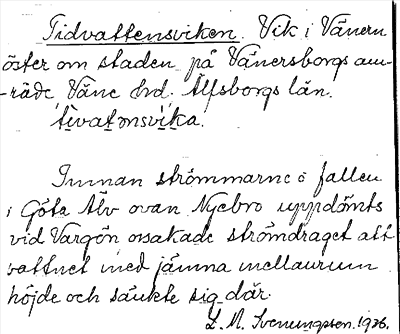 Tidvattensviken. Vik i Vänern
öster om staden på Vänersborgs om-
-råde Väne hrd. Älfsborgs län.
tivatənsvika.
Innan strömmarne o fallen
i Göta Älv ovan Nyebro uppdömts
vid Vargön orsakade strömdraget att
vattnet med jämna mellanrum
höjde och sänkte sig där.
L. M. Svenungsson. 1926.